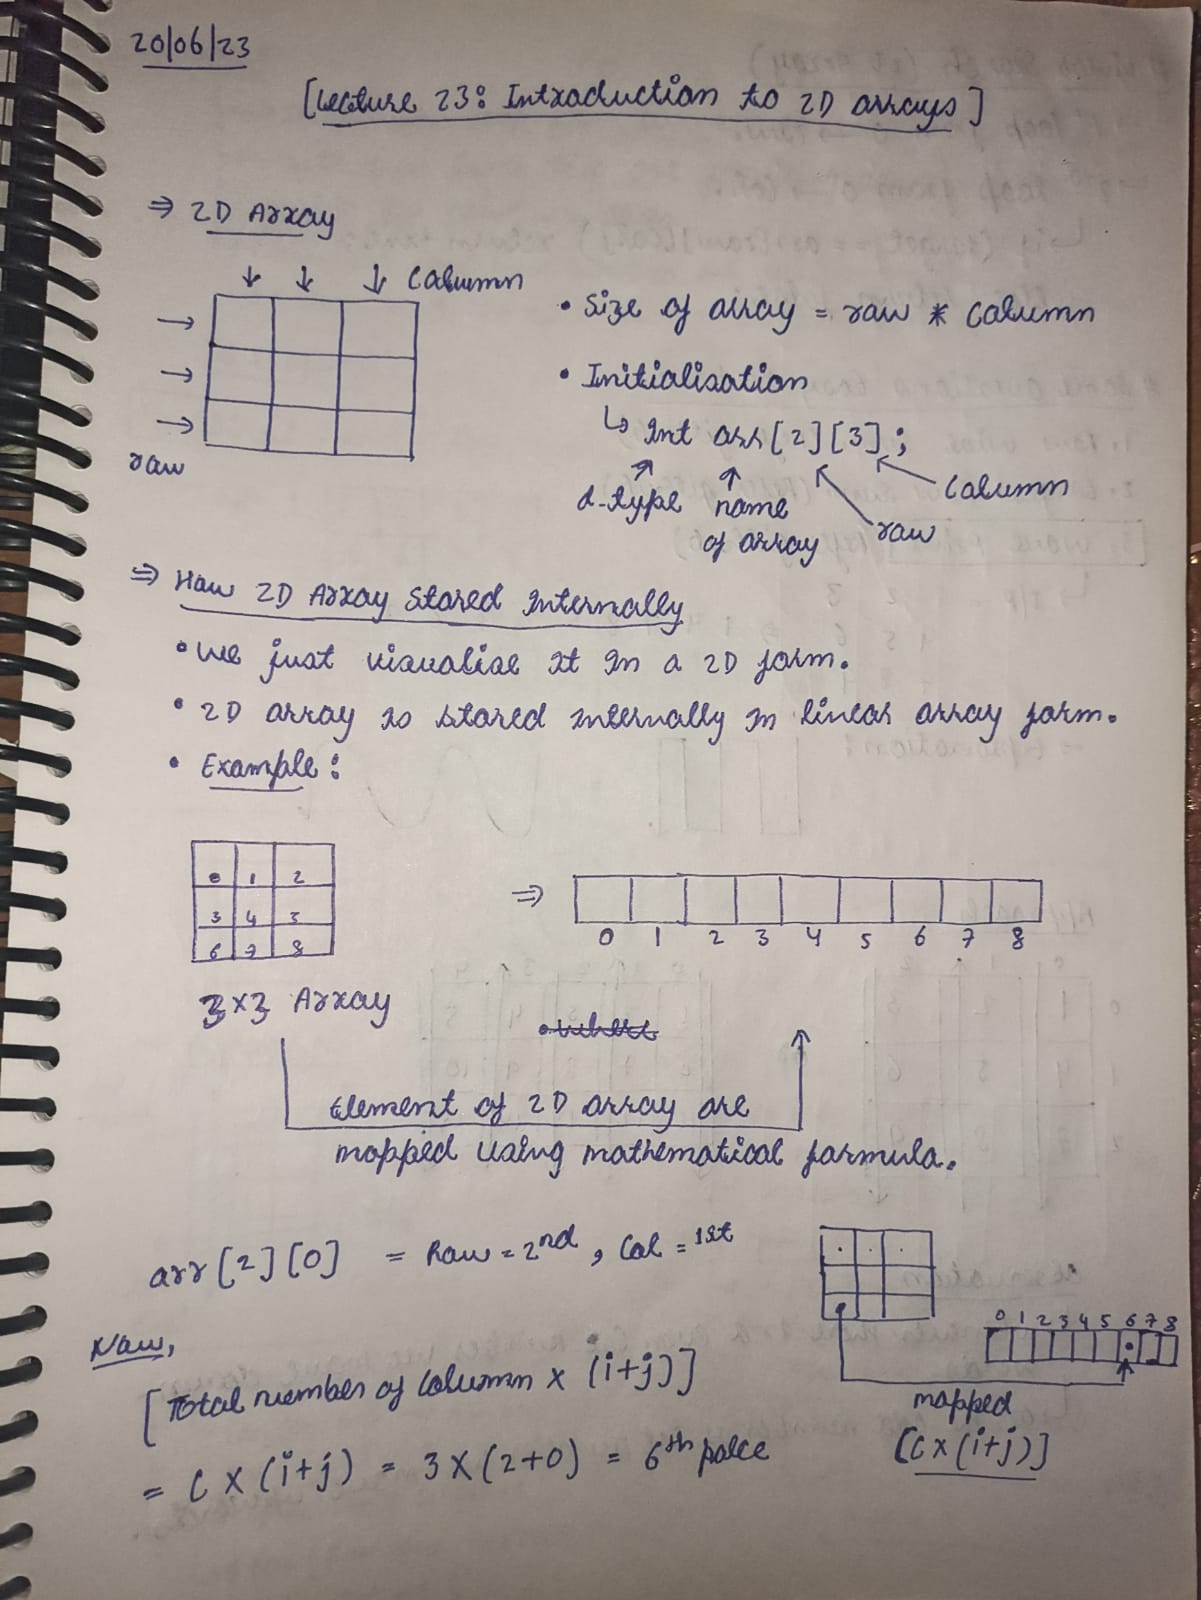 20/06/23
[Lecture 23: Introduction to 2D arrays]
⇒ 2D Array
↓ ↓ ↓ Column
→
→
→
row
• Size of array = row * column
• Initialisation
↳ Int arr[2][3];
d-type name of array row column
⇒ How 2D Array Stored Internally
• We just visualise it in a 2D form.
• 2D array is stored internally in linear array form.
• Example:
0 1 2
3 4 5
6 7 8
⇒
0 1 2 3 4 5 6 7 8
3×3 Array
• where
Element of 2D array are
mapped using mathematical formula.
arr[2][0] = Row = 2nd, Col = 1st
0 1 2 3 4 5 6 7 8
mapped
[C×(i+j)]
Now,
[Total number of column × (i+j)]
= C × (i+j) = 3 × (2+0) = 6th palce